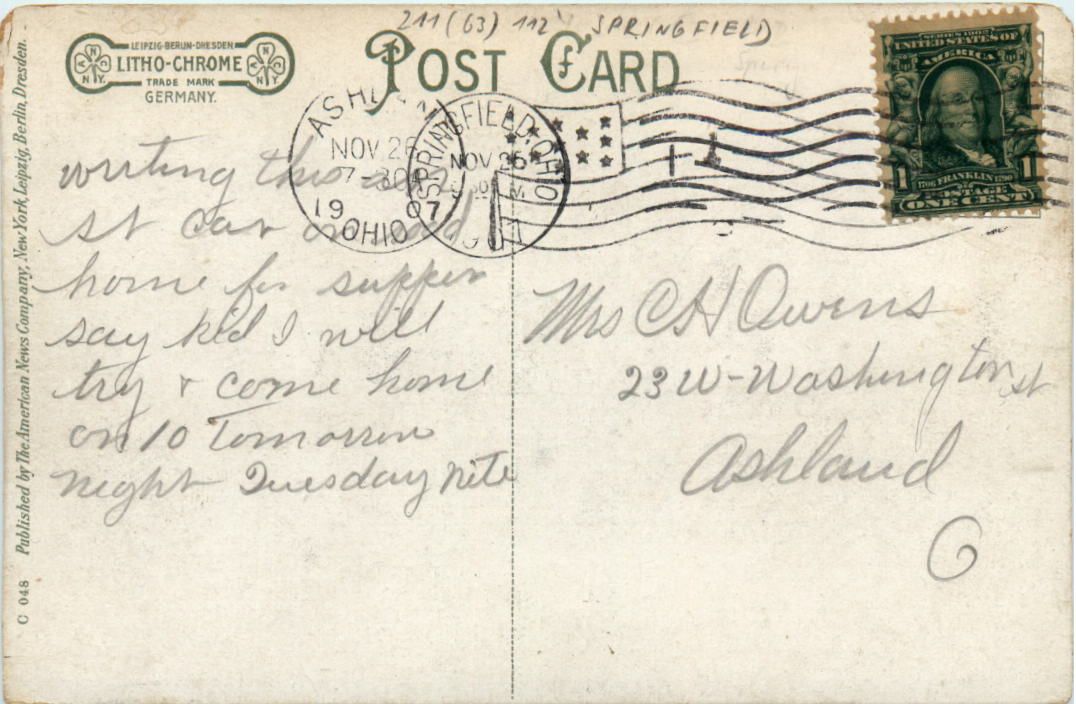 211 (63) 112 SPRINGFIELD
LEIPZIG-BERLIN-DRESDEN
LITHO-CHROME
TRADE MARK
GERMANY.
POST CARD
SERIES 1902
UNITED STATES OF
AMERICA
1 1706 FRANKLIN 1790 1
POSTAGE
ONE CENT
NOV 26
7-30
1907
OHIO
SPRINGFIELD, OHIO
NOV 25
1907
1
writing this
st car
home for supper
say kid I will
try & come home
on 10 Tomorrow
Night Tuesday Nite
Mrs C H Owens
23 W-Washington st
Ashland
O
Published by The American News Company, New-York, Leipzig, Berlin, Dresden.
C 048